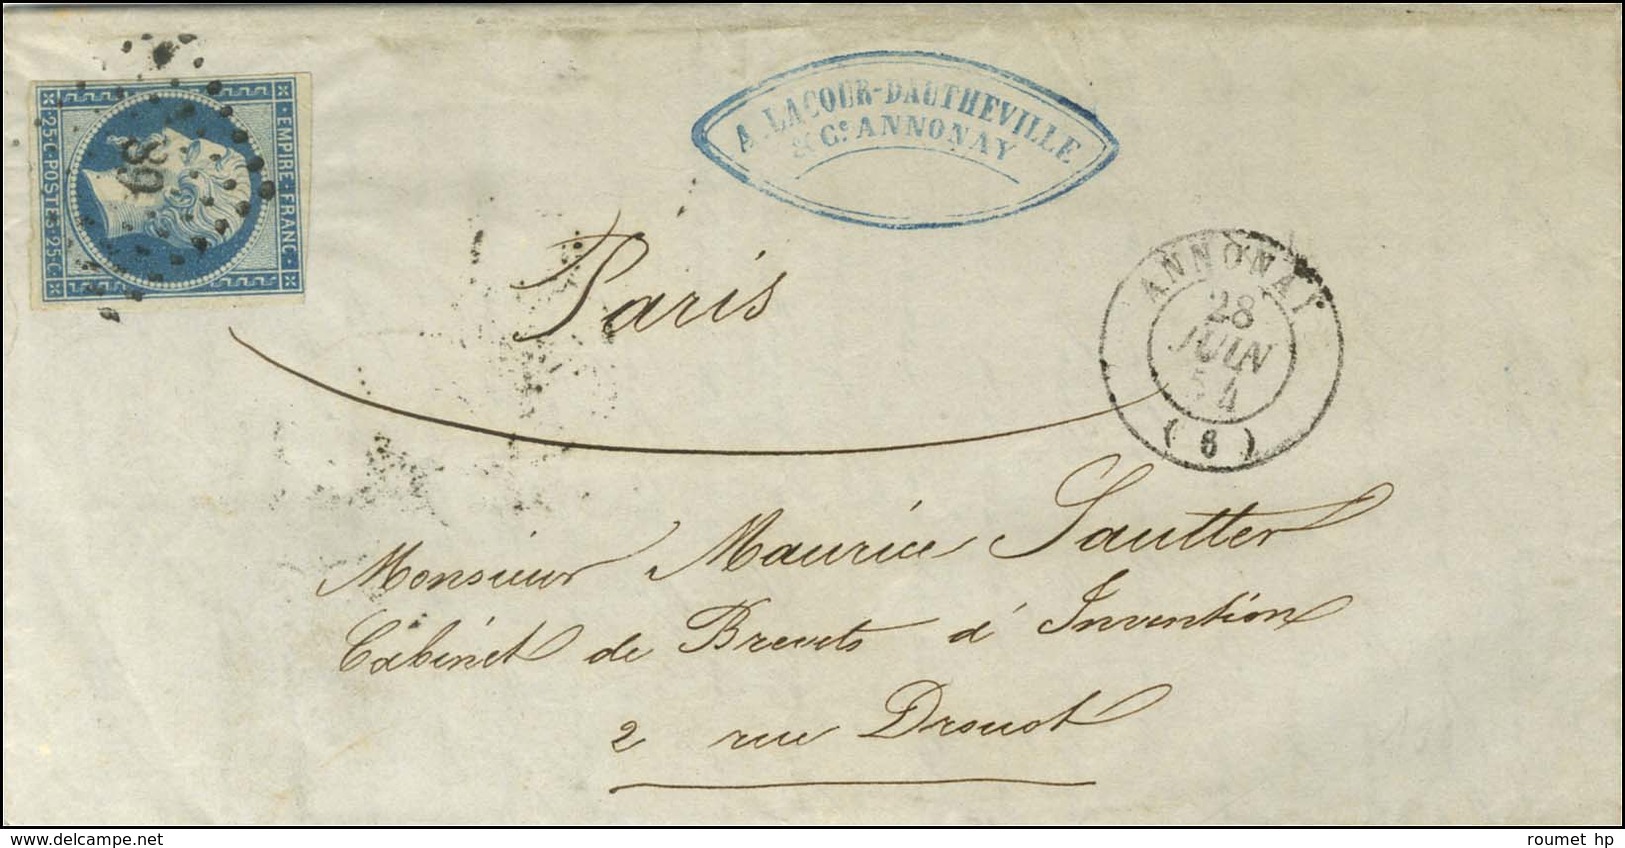 EMPIRE·FRANC·
·25·C·POSTES·25·C·
68
A. LACOUR-DAUTHEVILLE
& Cᵉ ANNONAY
ANNONAY
28
JUIN
54
(6)
Paris
Monsieur Maurice Sautter
Cabinet de Brevets d'Invention
2 rue Drouot
www.delcampe.net
roumet hp